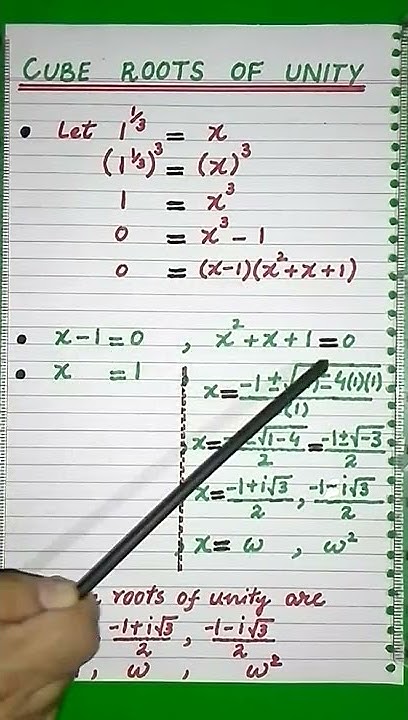 CUBE ROOTS OF UNITY
• Let 1^(1/3) = x
(1^(1/3))^3 = (x)^3
1 = x^3
0 = x^3 - 1
0 = (x-1)(x^2+x+1)
• x-1=0 , x^2+x+1=0
• x =1
x= -1±√ 4(1)(1) / (1)
x= √1-4 / 2 = -1±√-3 / 2
x= -1+i√3 / 2 , -1-i√3 / 2
x= ω , ω^2
roots of unity are
-1+i√3 / 2 , -1-i√3 / 2
, ω , ω^2